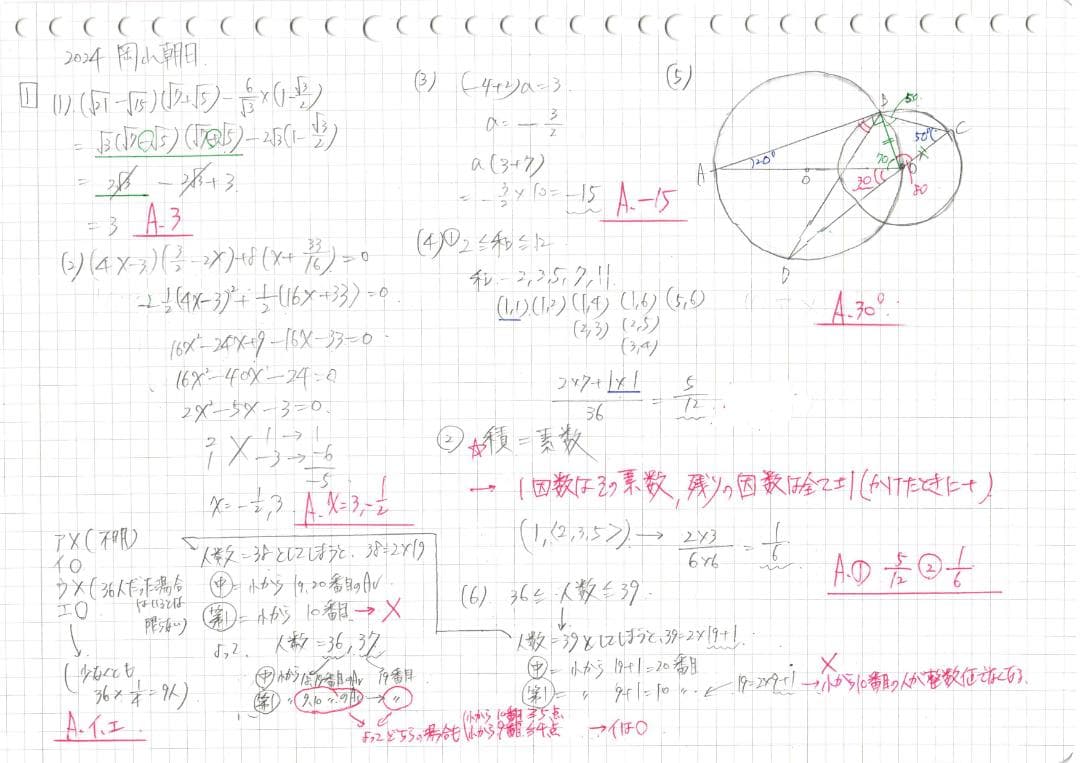 2024 岡山朝日.
1
(1) (√21-√15)(√7+√5)-6/√3×(1-√3/2)
=√3(√7-√5)(√7+√5)-2√3(1-√3/2)
=2√3-2√3+3.
=3 A.3
(2) (4x-3)(3/2-2x)+8(x+33/16)=0
-1/2(4x-3)²+1/2(16x+33)=0.
16x²-24x+9-16x-33=0.
16x²-40x-24=0
2x²-5x-3=0.
2 1→1
1 -3→-6
-5
x=-1/2,3 A.x=3,-1/2
(3) (-4+2)a=3.
a=-3/2
a(3+7)
=-3/2×10=-15 A.-15
(4) ① 2≦和≦12
和…2,3,5,7,11.
(1,1).(1,2)(1,4)(1,6)(5,6)
(2,3)(2,5)
(3,4)
2×7+1×1/36=5/12
② ☆積=素数
→1因数はその素数,残りの因数は全て±1(かけたときに+)
(1,〈2,3,5〉)→2×3/6×6=1/6
A.① 5/12 ② 1/6
(5)
A
B
C
D
O
20°
50
50°
70
30
80
A.30°
(6) 36≦人数≦39.
人数=39としてしまうと,39=2×19+1.
中=小から19+1=20番目
第1= 〃 9+1=10 〃 ← 19=2×9+1→小から10番目の人が整数値でなくなる
×
人数=38としてしまうと,38=2×19
中=小から19,20番目のAv
第1=小から10番目→×
よって 人数=36,37
中 小から18,19番目のAv 19番目
第1 〃 9,10 〃のAv → 〃
よってどちらの場合も 小から10番目≧5点
小から9番目≧4点 →イは○
ア×(不明)
イ○
ウ×(36人だった場合
はいるとは
限らない)
エ○
(少なくとも
36×1/4=9人)
A.イ,エ